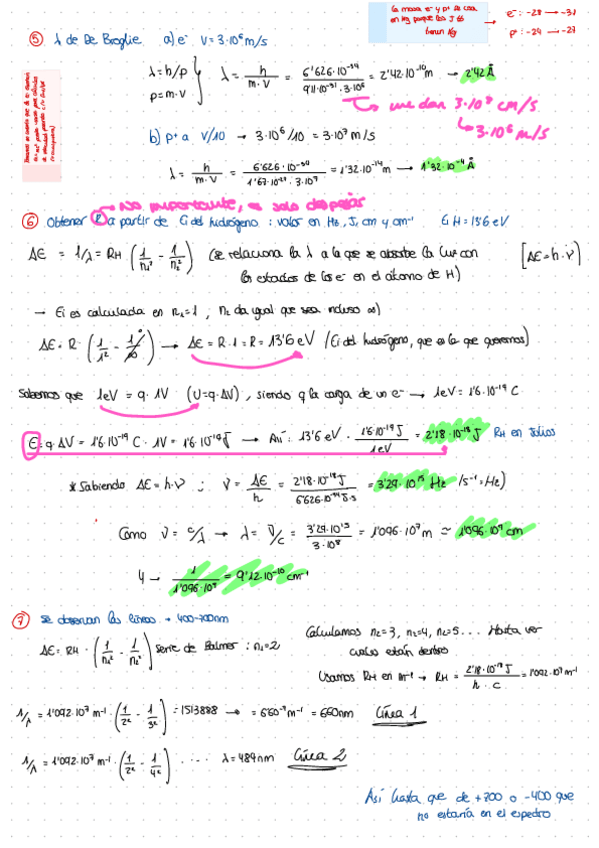 la masa e⁻ y p⁺ se usa
en kg porque los J
tienen kg
e⁻: -28 → -31
p: -24 → -27
⑤ λ de De Broglie a) e⁻ V = 3·10⁶ m/s
λ = h/p
p = m·v
λ = h / m·V = 6'626·10⁻³⁴ / 9'11·10⁻³¹·3·10⁶ = 2'42·10⁻¹⁰ m → 2'42 Å
me dan 3·10⁸ cm/s
↳ 3·10⁶ m/s
b) p+ a V/10 → 3·10⁶/10 = 3·10⁷ m/s
λ = h / m·v = 6'626·10⁻³⁴ / 1'67·10⁻²⁷·3·10⁷ = 1'32·10⁻¹⁴ m → 1'32·10⁻⁴ Å
→ No importante, es solo despejar
⑥ Obtener R a partir de Ei del hidrógeno : valor en Hz, J, cm y cm⁻¹ Ei H = 13'6 eV
ΔE = 1/λ = RH · (1/n₁² - 1/n₂²) (se relaciona la λ a la que se absorbe la luz con [ΔE = h·ν]
los estados de los e⁻ en el átomo de H)
→ Ei es calculada en n₁=1, n₂ da igual que sea incluso ∞)
ΔE = R · (1/1² - 1/∞) → ΔE = R·1 = R = 13'6 eV (Ei del hidrógeno, que es la que queremos)
Sabemos que 1eV = q · 1V (U=q·ΔV), siendo q la carga de un e⁻ → 1eV = 1'6·10⁻¹⁹ C
E = q·ΔV = 1'6·10⁻¹⁹ C · 1V = 1'6·10⁻¹⁹ J → Así: 13'6 eV · 1'6·10⁻¹⁹ J / 1eV = 2'18·10⁻¹⁸ J RH en Julios
* Sabiendo ΔE = h·ν ; ν = ΔE / h = 2'18·10⁻¹⁸ J / 6'626·10⁻³⁴ J·s = 3'29·10¹⁵ Hz (s⁻¹ = Hz)
Como ν = c/λ → λ = ν/c = 3'29·10¹⁵ / 3·10⁸ = 1'096·10⁷ m ≈ 1'096·10⁹ cm
Y → 1 / 1'096·10⁹ = 9'12·10⁻¹⁰ cm⁻¹
⑦ Se observan las líneas → 400-700nm
ΔE = RH · (1/n₁² - 1/n₂²) Serie de Balmer : n₁=2
Calculamos n₂=3, n₂=4, n₂=5... Hasta ver
cuales están dentro
Usamos RH en m⁻¹ → RH = 2'18·10⁻¹⁸ J / h · c = 1'092·10⁷ m⁻¹
1/λ = 1'092·10⁷ m⁻¹ · (1/2² - 1/3²) = 1513888 → = 6'60⁻⁷ m⁻¹ = 660nm Línea 1
1/λ = 1'092·10⁷ m⁻¹ · (1/2² - 1/4²) .... λ = 484nm Línea 2
Así hasta que de +700 o -400 que
no estaría en el espectro